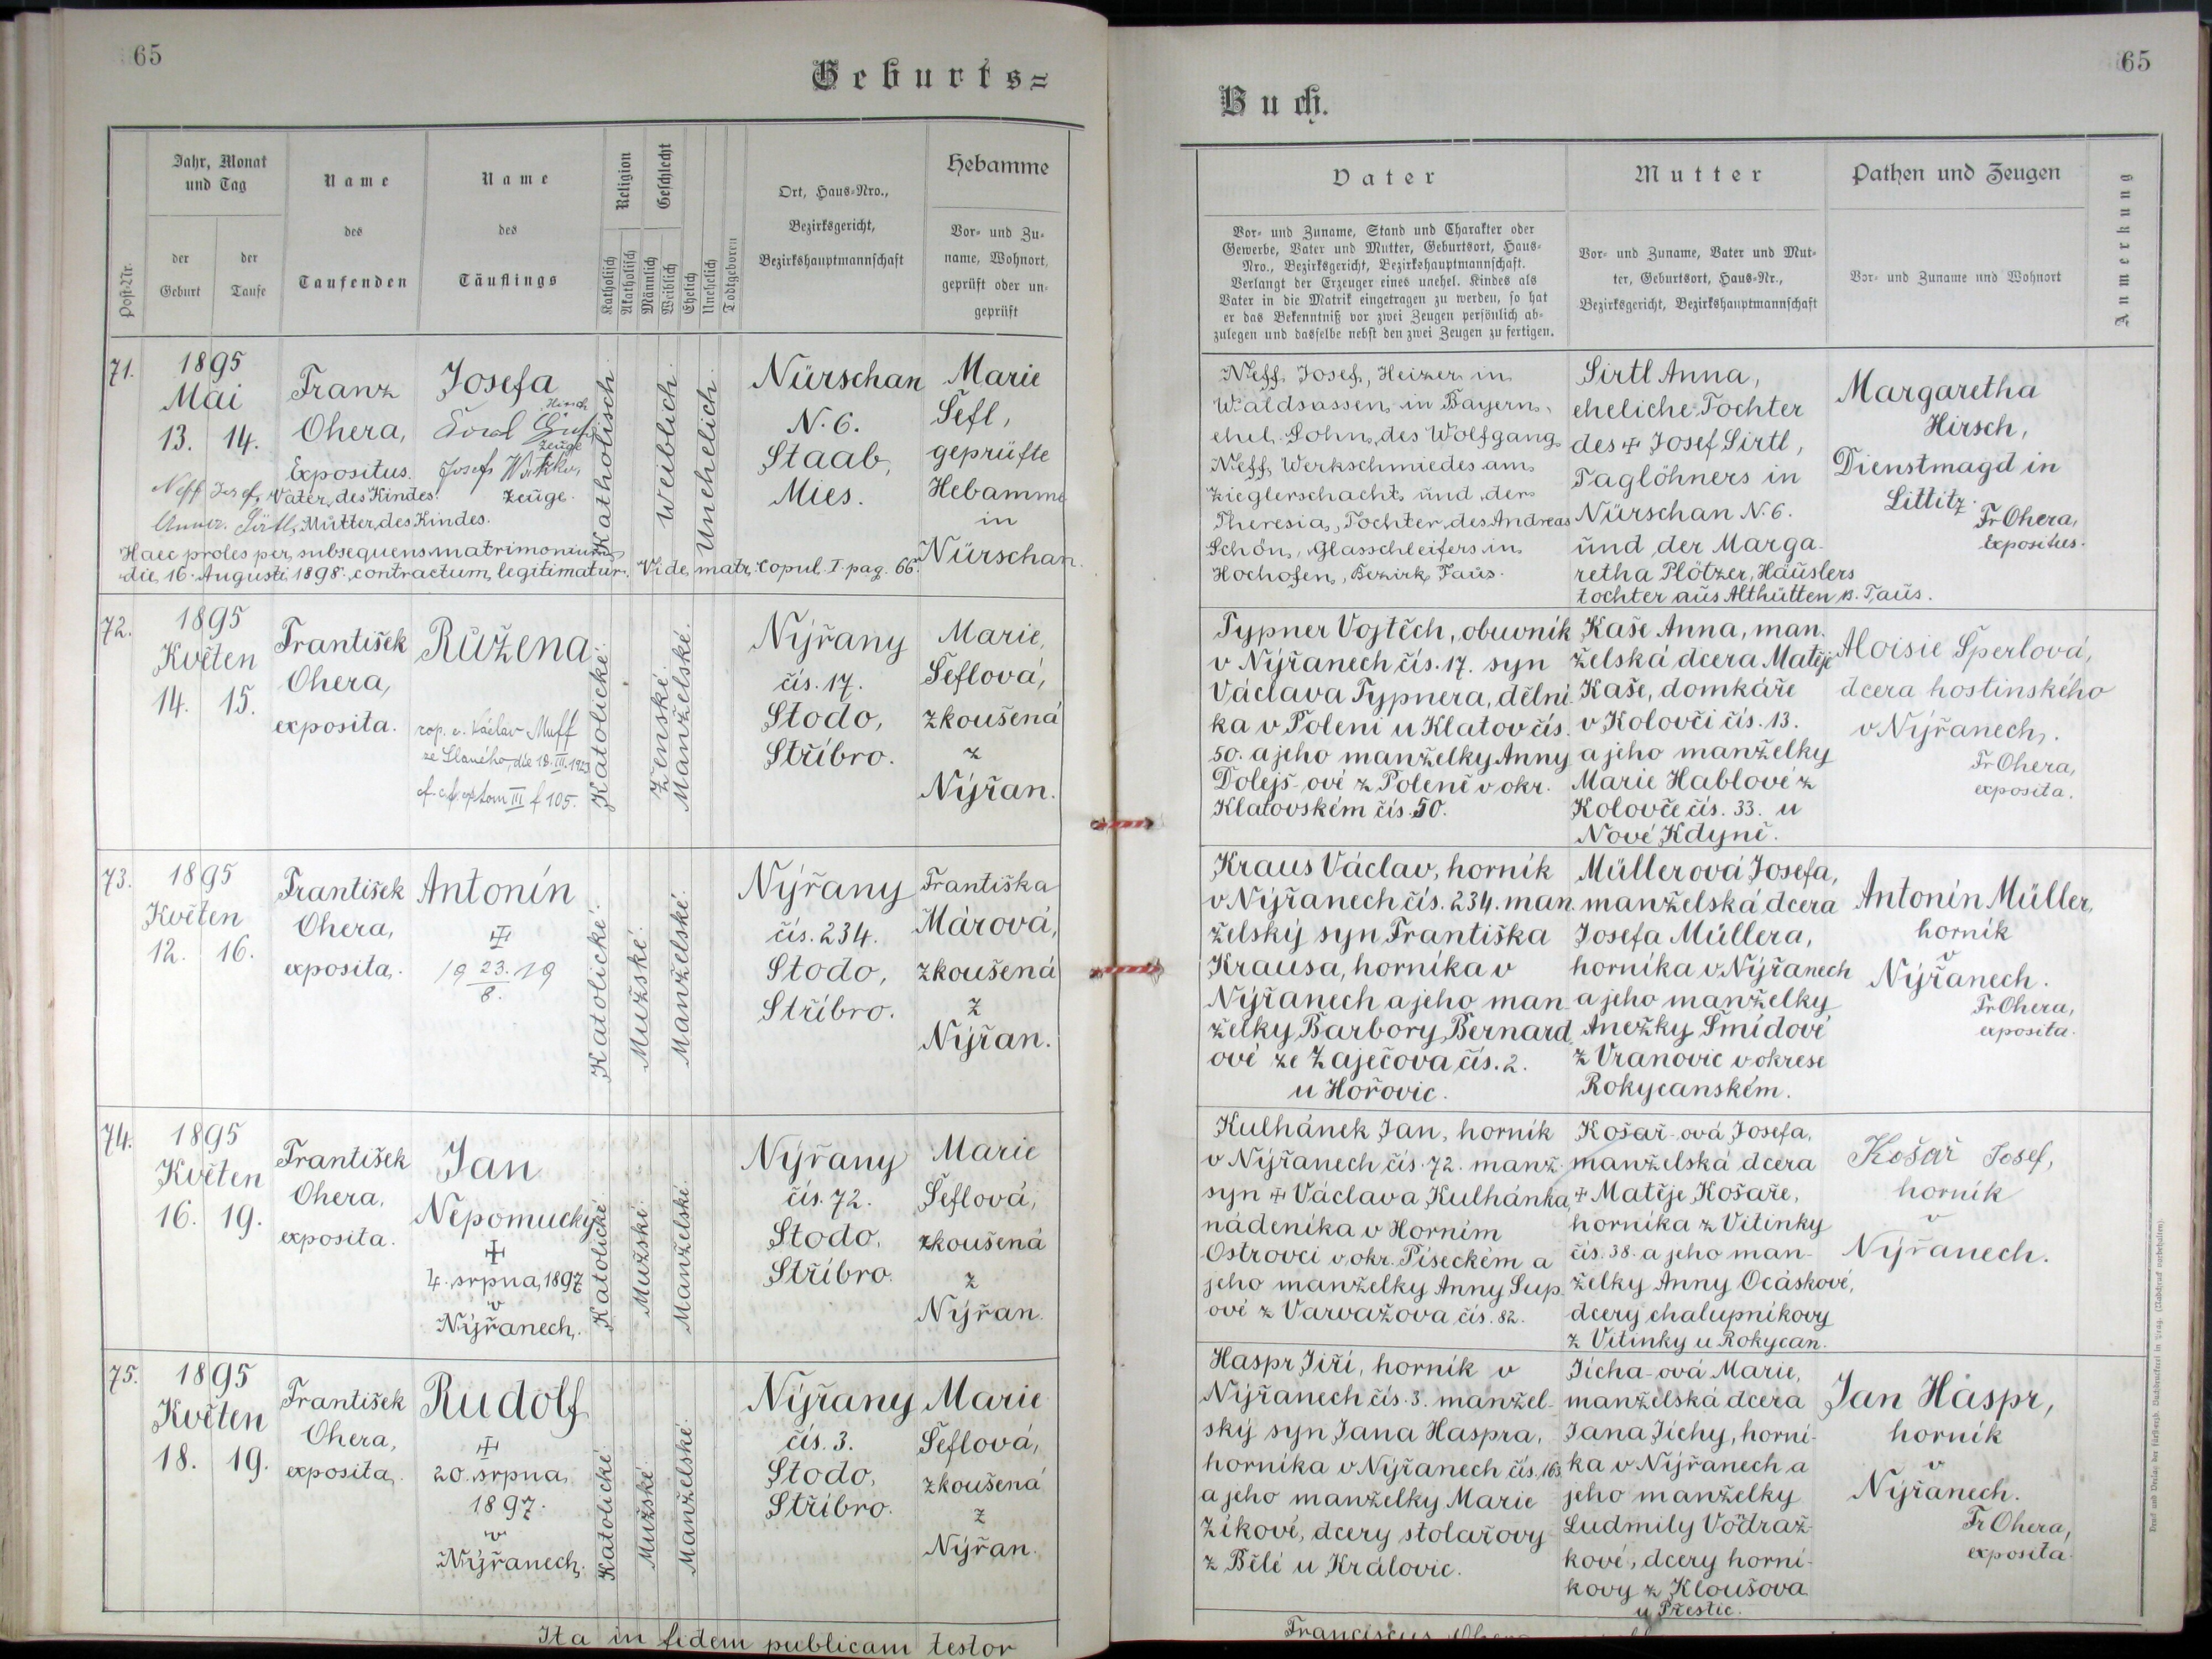 65
Geburts=
Jahr, Monat
und Tag
Name
des
Taufenden
Name
des
Täuflings
Religion
Geschlecht
Ort, Haus-Nro.,
Bezirksgericht,
Bezirkshauptmannschaft
Hebamme
Post-Nr.
der
Geburt
der
Taufe
Katholisch
Akatholisch
Männlich
Weiblich
Ehelich
Unehelich
Todtgeboren
Vor- und Zu-
name, Wohnort,
geprüft oder un-
geprüft
71.
1895
Mai
13. 14.
Franz
Ohera,
Expositus.
Josefa
Hirsch
zeuge
Josef
zeuge.
Neff Josef, Vater des Kindes.
Anna Sirtl, Mutter des Kindes.
Haec proles per subsequens matrimonium
die 16. Augusti 1898. contractum, legitimatur. Vide matr. Copul. I. pag. 66.
Katholisch.
Weiblich.
Unehelich.
Nürschan
N. 6.
Staab,
Mies.
Marie
Šefl,
geprüfte
Hebamme
in
Nürschan.
72.
1895
Květen
14. 15.
František
Ohera,
exposita.
Růžena
cop. c. Václav Muff
ze Slaného, die 18. III. 1923
cf. tom III f 105.
Katolické.
Ženské.
Manželské.
Nýřany
čís. 17.
Stodo,
Stříbro.
Marie,
Šeflová,
zkoušená
z
Nýřan.
73.
1895
Květen
12. 16.
František
Ohera,
exposita.
Antonín
19 23. 19
8.
Katolické.
Mužské.
Manželské.
Nýřany
čís. 234.
Stodo,
Stříbro.
Františka
Márová,
zkoušená
z
Nýřan.
74.
1895
Květen
16. 19.
František
Ohera,
exposita.
Jan
Nepomucký
4. srpna, 1897
v
Nýřanech.
Katolické.
Mužské.
Manželské.
Nýřany
čís. 72.
Stodo,
Stříbro.
Marie
Šeflová,
zkoušená
z
Nýřan.
75.
1895
Květen
18. 19.
František
Ohera,
exposita.
Rudolf
20. srpna
1897.
v
Nýřanech.
Katolické.
Mužské.
Manželské.
Nýřany
čís. 3.
Stodo,
Stříbro.
Marie
Šeflová,
zkoušená
z
Nýřan.
Ita in fidem publicam testor
65
Buch.
Vater
Mutter
Pathen und Zeugen
Anmerkung
Vor- und Zuname, Stand und Charakter oder
Gewerbe, Vater und Mutter, Geburtsort, Haus-
Nro., Bezirksgericht, Bezirkshauptmannschaft.
Verlangt der Erzeuger eines unehel. Kindes als
Vater in die Matrik eingetragen zu werden, so hat
er das Bekenntniß vor zwei Zeugen persönlich ab-
zulegen und dasselbe nebst den zwei Zeugen zu fertigen.
Vor- und Zuname, Vater und Mut-
ter, Geburtsort, Haus-Nr.,
Bezirksgericht, Bezirkshauptmannschaft
Vor- und Zuname und Wohnort
Neff Josef, Heizer in
Waldsassen in Bayern,
ehel. Sohn des Wolfgang
Neff, Werkschmiedes am
Zieglerschacht und der
Theresia, Tochter des Andreas
Schön, Glasschleifers in
Hochofen, Bezirk Taus.
Sirtl Anna,
eheliche Tochter
des + Josef Sirtl,
Taglöhners in
Nürschan N. 6.
und der Marga-
retha Plötzer, Häuslers
tochter aus Althütten B. Taus.
Margaretha
Hirsch,
Dienstmagd in
Littitz.
Fr Ohera,
Expositus.
Typner Vojtěch, obuvník
v Nýřanech čís. 17. syn
Václava Typnera, dělní-
ka v Poleni u Klatov čís.
50. a jeho manželky Anny
Dolejš-ové z Poleně v okr.
Klatovském čís. 50.
Kaše Anna, man-
želská dcera Matěje
Kaše, domkáře
v Kolovči čís. 13.
a jeho manželky
Marie Hablové z
Kolovče čís. 33. u
Nové Kdyně.
Aloisie Šperlová,
dcera hostinského
v Nýřanech.
Fr Ohera,
exposita.
Kraus Václav, horník
v Nýřanech čís. 234. man-
želský syn Františka
Krausa, horníka v
Nýřanech a jeho man-
želky Barbory Bernard-
ové ze Zaječova čís. 2.
u Hořovic.
Müllerová Josefa,
manželská dcera
Josefa Müllera,
horníka v Nýřanech
a jeho manželky
Anežky Šmídové
z Vranovic v okrese
Rokycanském.
Antonín Müller,
horník
v
Nýřanech.
Fr Ohera,
exposita.
Kulhánek Jan, horník
v Nýřanech čís. 72. manž.
syn + Václava Kulhánka,
nádeníka v Horním
Ostrovci v okr. Píseckém a
jeho manželky Anny Sup-
ové z Varvažova čís. 82.
Košař-ová Josefa,
manželská dcera
+ Matěje Košaře,
horníka z Vitinky
čís. 38. a jeho man-
želky Anny Ocáskové,
dcery chalupníkovy
z Vitinky u Rokycan.
Košař Josef,
horník
v
Nýřanech.
Haspr Jiří, horník v
Nýřanech čís. 3. manžel-
ský syn Jana Haspra,
horníka v Nýřanech čís. 163
a jeho manželky Marie
Zíkové, dcery stolařovy
z Bělé u Královic.
Jícha-ová Marie,
manželská dcera
Jana Jíchy, horní-
ka v Nýřanech a
jeho manželky
Ludmily Vodraž-
kové, dcery horní-
kovy z Kloušova
u Přestic.
Jan Haspr,
horník
v
Nýřanech.
Fr Ohera,
exposita.
Franciscus